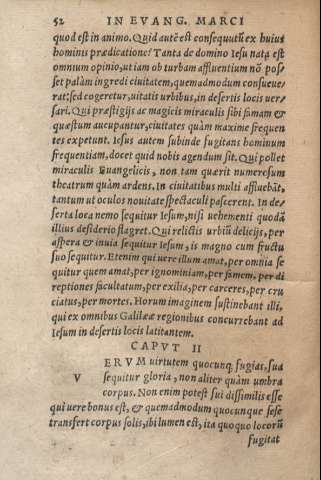 52 IN EVANG. MARCI
quod est in animo. Quid autē est consequutū ex huius
hominis prædicatione? Tanta de domino Iesu nata est
omnium opinio, ut iam ob turbam affluentium nō pos-
set palàm ingredi ciuitatem, quemadmodum consueue-
rat: sed cogeretur, uitatis urbibus, in desertis locis uer-
sari. Qui præstigijs ac magicis miraculis sibi famam &
quæstum aucupantur, ciuitates quàm maxime frequen
tes expetunt. Iesus autem subinde fugitans hominum
frequentiam, docet quid nobis agendum sit. Qui pollet
miraculis Euangelicis, non tam quærit numerosum
theatrum quàm ardens. In ciuitatibus multi affluebāt,
tantum ut oculos nouitate spectaculi pascerent. In de-
serta loca nemo sequitur Iesum, nisi uehementi quodā
illius desiderio flagret. Qui relictis urbiū delicijs, per
aspera & inuia sequitur Iesum, is magno cum fructu
suo sequitur. Etenim qui uere illum amat, per omnia se
quitur quem amat, per ignominiam, per famem, per di
reptiones facultatum, per exilia, per carceres, per cru
ciatus, per mortes. Horum imaginem sustinebant illi,
qui ex omnibus Galilææ regionibus concurrebant ad
Iesum in desertis locis latitantem.
CAPVT II
V ERVM uirtutem quocunq; fugias, sua
sequitur gloria, non aliter quàm umbra
corpus. Non enim potest sui dissimilis esse
qui uere bonus est, & quemadmodum quocunque sese
transfert corpus solis, ibi lumen est, ita quoquo locorū
fugitat